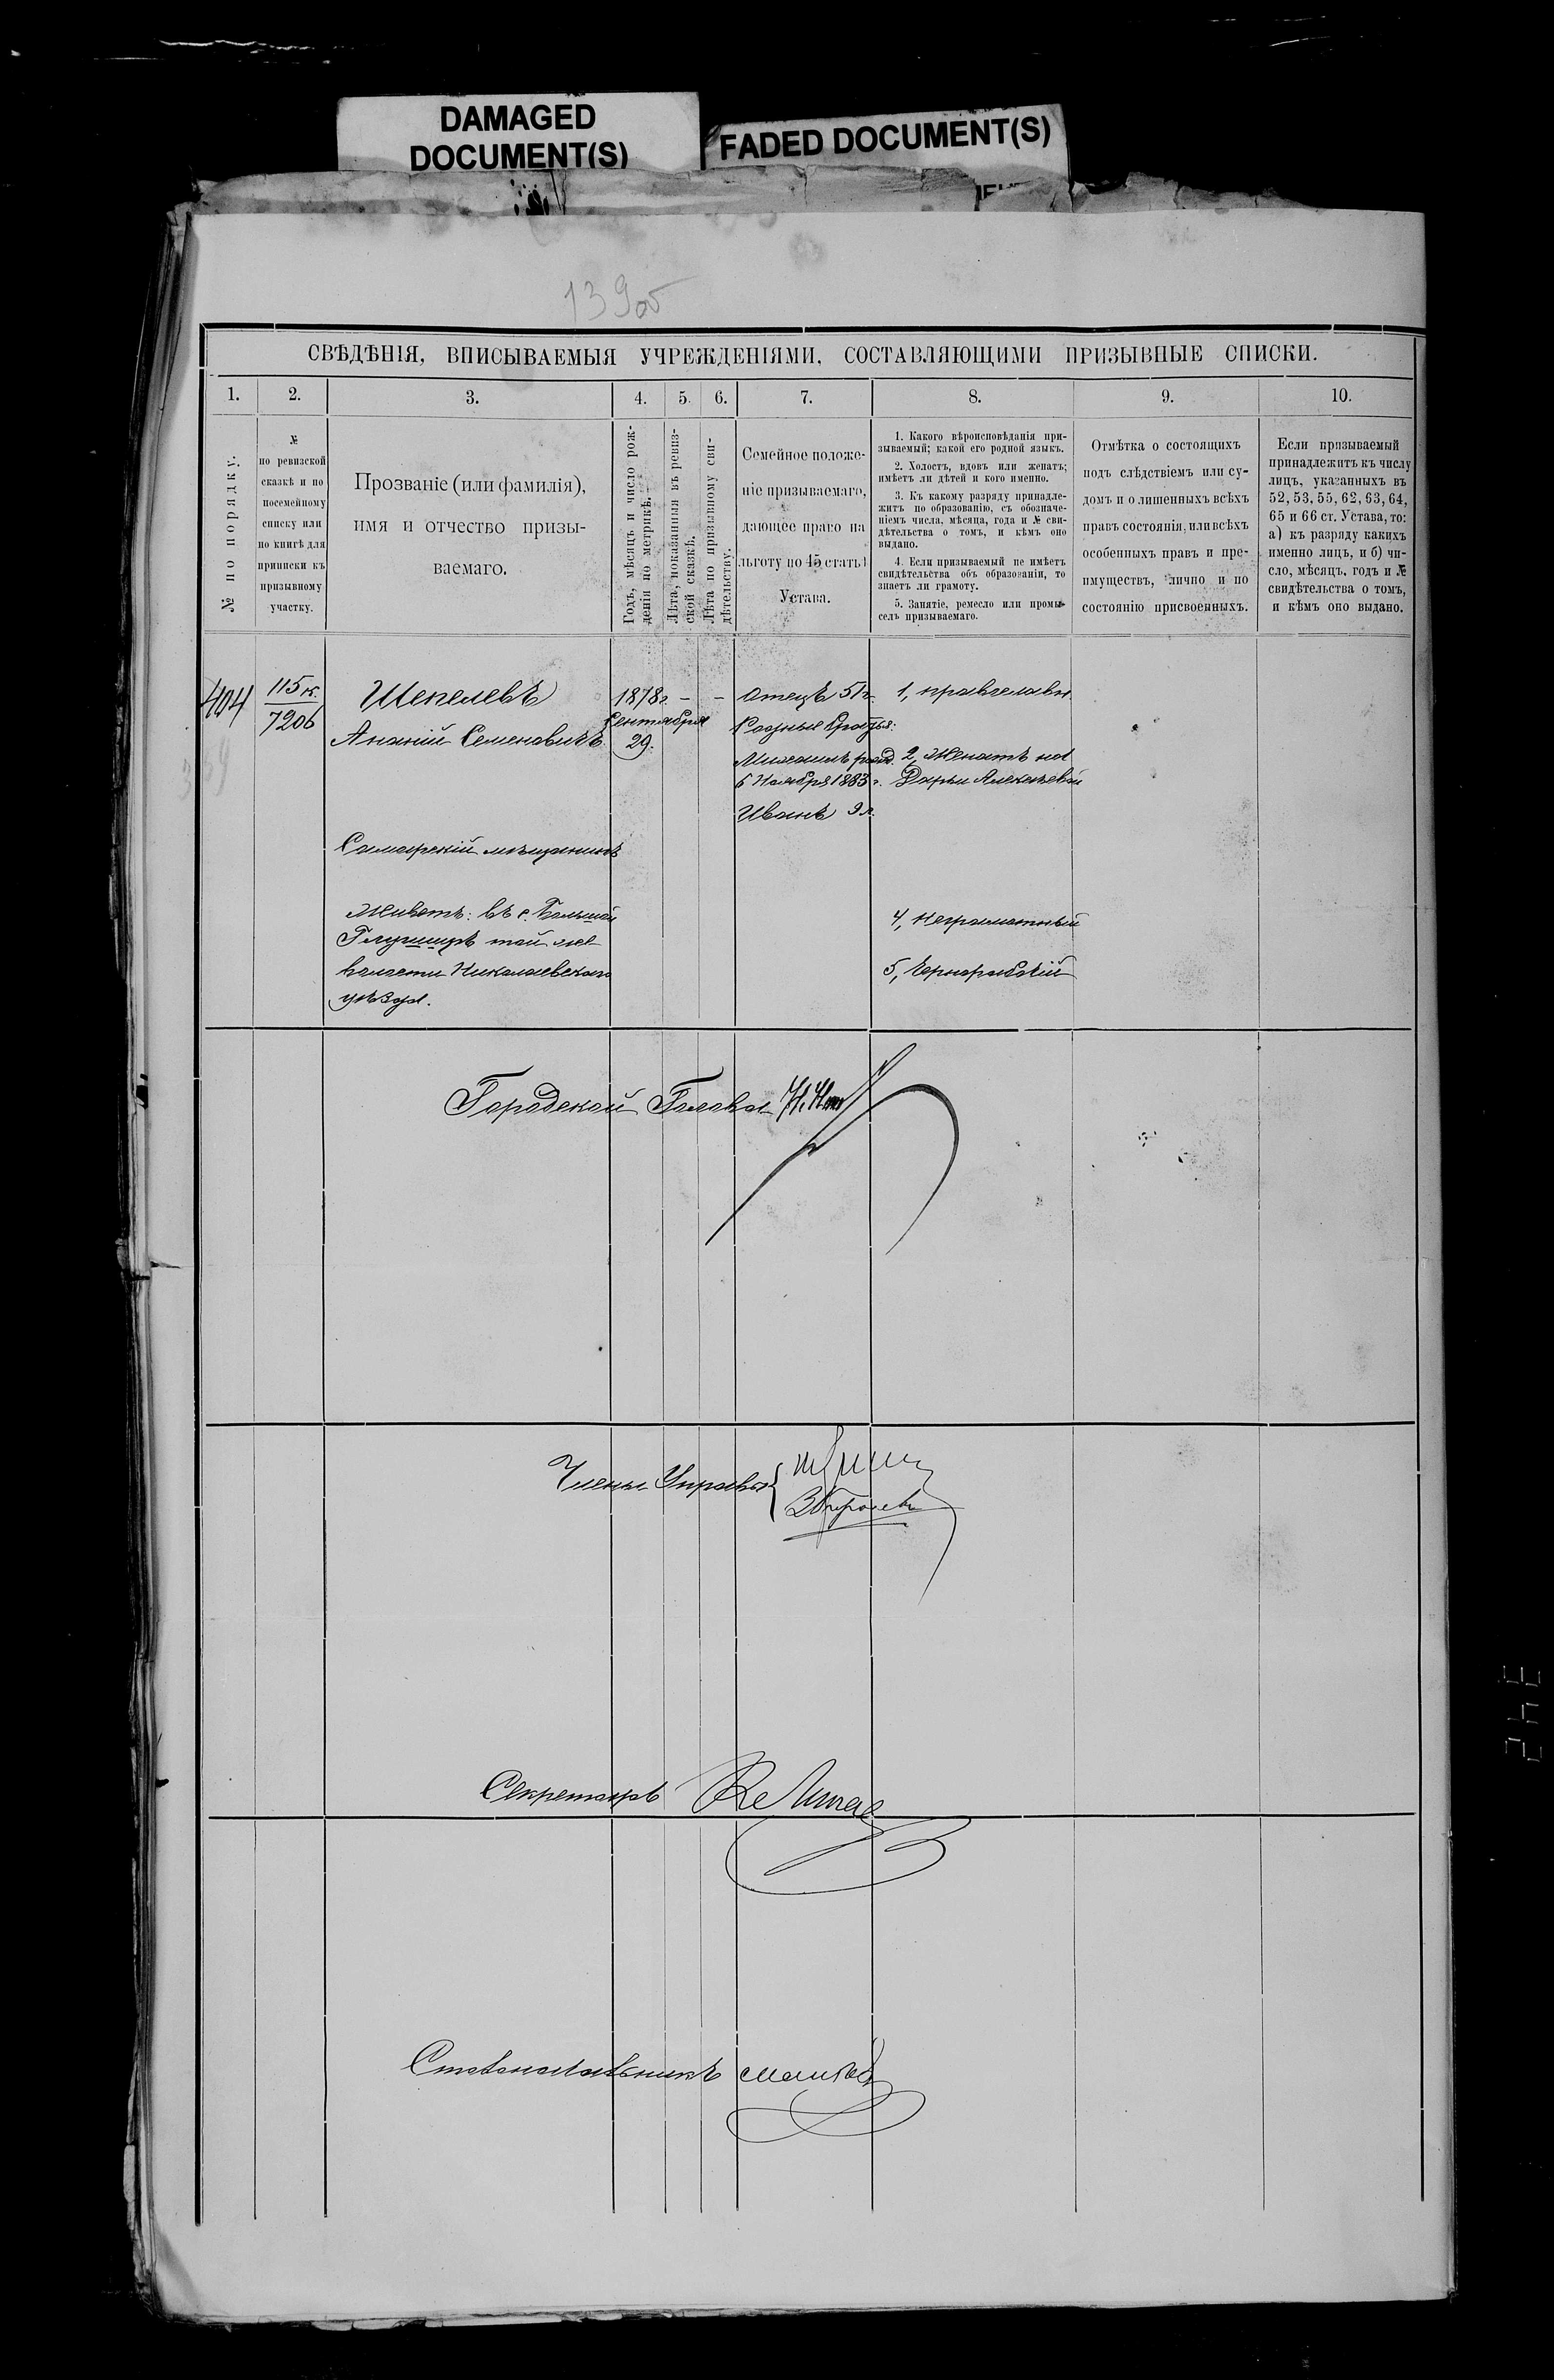 DAMAGED
DOCUMENT(S)
FADED DOCUMENT(S)
139об
СВѢДѢНІЯ, ВПИСЫВАЕМЫЯ УЧРЕЖДЕНІЯМИ, СОСТАВЛЯЮЩИМИ ПРИЗЫВНЫЕ СПИСКИ.
1.
2.
3.
4.
5.
6.
7.
8.
9.
10.
№ по порядку.
№
по ревизской
сказкѣ и по
посемейному
списку или
по книгѣ для
приписки къ
призывному
участку.
Прозваніе (или фамилія),
имя и отчество призы-
ваемаго.
Годъ, мѣсяцъ и число рож-
денія по метрикѣ.
Лѣта, показанныя въ ревиз-
ской сказкѣ.
Лѣта по призывному сви-
дѣтельству.
Семейное положе-
ніе призываемаго,
дающее право на
льготу по 45 статьѣ
Устава.
1. Какого вѣроисповѣданія при-
зываемый; какой его родной языкъ.
2. Холостъ, вдовъ или женатъ;
имѣетъ ли дѣтей и кого именно.
3. Къ какому разряду принадле-
житъ по образованію, съ обозначе-
ніемъ числа, мѣсяца, года и № сви-
дѣтельства о томъ, и кѣмъ оно
выдано.
4. Если призываемый не имѣетъ
свидѣтельства объ образованіи, то
знаетъ ли грамоту.
5. Занятіе, ремесло или промы-
селъ призываемаго.
Отмѣтка о состоящихъ
подъ слѣдствіемъ или су-
домъ и о лишенныхъ всѣхъ
правъ состоянія, или всѣхъ
особенныхъ правъ и пре-
имуществъ, лично и по
состоянію присвоенныхъ.
Если призываемый
принадлежитъ къ числу
лицъ, указанныхъ въ
52, 53, 55, 62, 63, 64,
65 и 66 ст. Устава, то:
а) къ разряду какихъ
именно лицъ, и б) чи-
сло, мѣсяцъ, годъ и №
свидѣтельства о томъ,
и кѣмъ оно выдано.
404
115 к.
7206
Шепелевъ
Ананій Семеновичъ
Самарскій мѣщанинъ
Живетъ: въ с. Большой
Глушицѣ той же
волости Николаевскаго
уѣзда.
1878 г.
Сентября
29.
–
–
отецъ 51 г.
Родные братья:
Михаилъ рожд.
6 Ноября 1883 г.
Иванъ 9 л.
1, православн.
2, Женатъ на
Дарьи Алексѣевой
4, неграмотный
5, Чернорабочій
Городской Голова
Члены Управы
Секретарь
Столоначальникъ
342